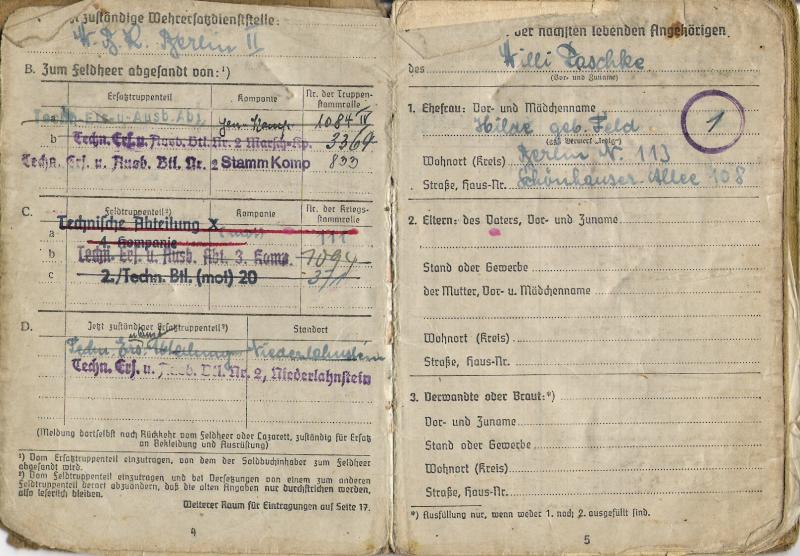 zuständige Wehrersatzdienststelle:
W. B. K. Berlin II
B. Zum Feldheer abgesandt von:¹)
Ersatztruppenteil Kompanie Nr. der Truppenstammrolle
a Techn. Ers. u. Ausb. Abt. Gen. Komp. 1084 IV
b Techn. Ers. u. Ausb. Btl. Nr. 2 Marsch-Kp. 3364
Techn. Ers. u. Ausb. Btl. Nr. 2 Stamm Komp 833
C. Feldtruppenteil²) Kompanie Nr. der Kriegsstammrolle
Technische Abteilung X
a 111
4 Kompanie
b Techn. Ers. u. Ausb. Abt. 3. Komp. 1094
c 2./Techn. Btl. (mot) 20 371
D. Jetzt zuständiger Ersatztruppenteil²) Standort
Techn. Ers. Abteilung Niederlahnstein
Techn. Ers. u. Ausb. Btl. Nr. 2, Niederlahnstein
(Meldung dortselbst nach Rückkehr vom Feldheer oder Lazarett, zuständig für Ersatz
an Bekleidung und Ausrüstung)
¹) Vom Ersatztruppenteil einzutragen, von dem der Soldbuchinhaber zum Feldheer
abgesandt wird.
²) Vom Feldtruppenteil einzutragen und bei Versetzungen von einem zum anderen
Feldtruppenteil derart abzuändern, daß die alten Angaben nur durchstrichen werden,
also leserlich bleiben.
Weiterer Raum für Eintragungen auf Seite 17.
4
der nächsten lebenden Angehörigen
des Willi Paschke
(Vor- und Zuname)
1. Ehefrau: Vor- und Mädchenname
1
Hilde geb. Feld
Wohnort (Kreis) Berlin N. 113
Straße, Haus-Nr. Schönhauser Allee 108
2. Eltern: des Vaters, Vor- und Zuname
Stand oder Gewerbe
der Mutter, Vor- u. Mädchenname
Wohnort (Kreis)
Straße, Haus-Nr.
3. Verwandte oder Braut:*)
Vor- und Zuname
Stand oder Gewerbe
Wohnort (Kreis)
Straße, Haus-Nr.
*) Ausfüllung nur, wenn weder 1. noch 2. ausgefüllt sind.
5